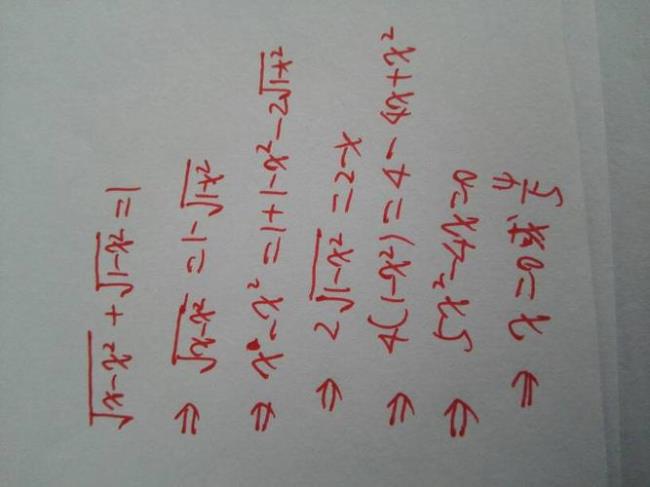 √(x-x²) + √(1-x²) = 1
⇒ √(x-x²) = 1-√(1-x²)
⇒ x-x² = 1+1-x²-2√(1-x²)
⇒ 2√(1-x²) = 2-x
⇒ 4(1-x²) = 4-4x+x²
⇒ 5x²-4x=0
⇒ x=0或 4/5